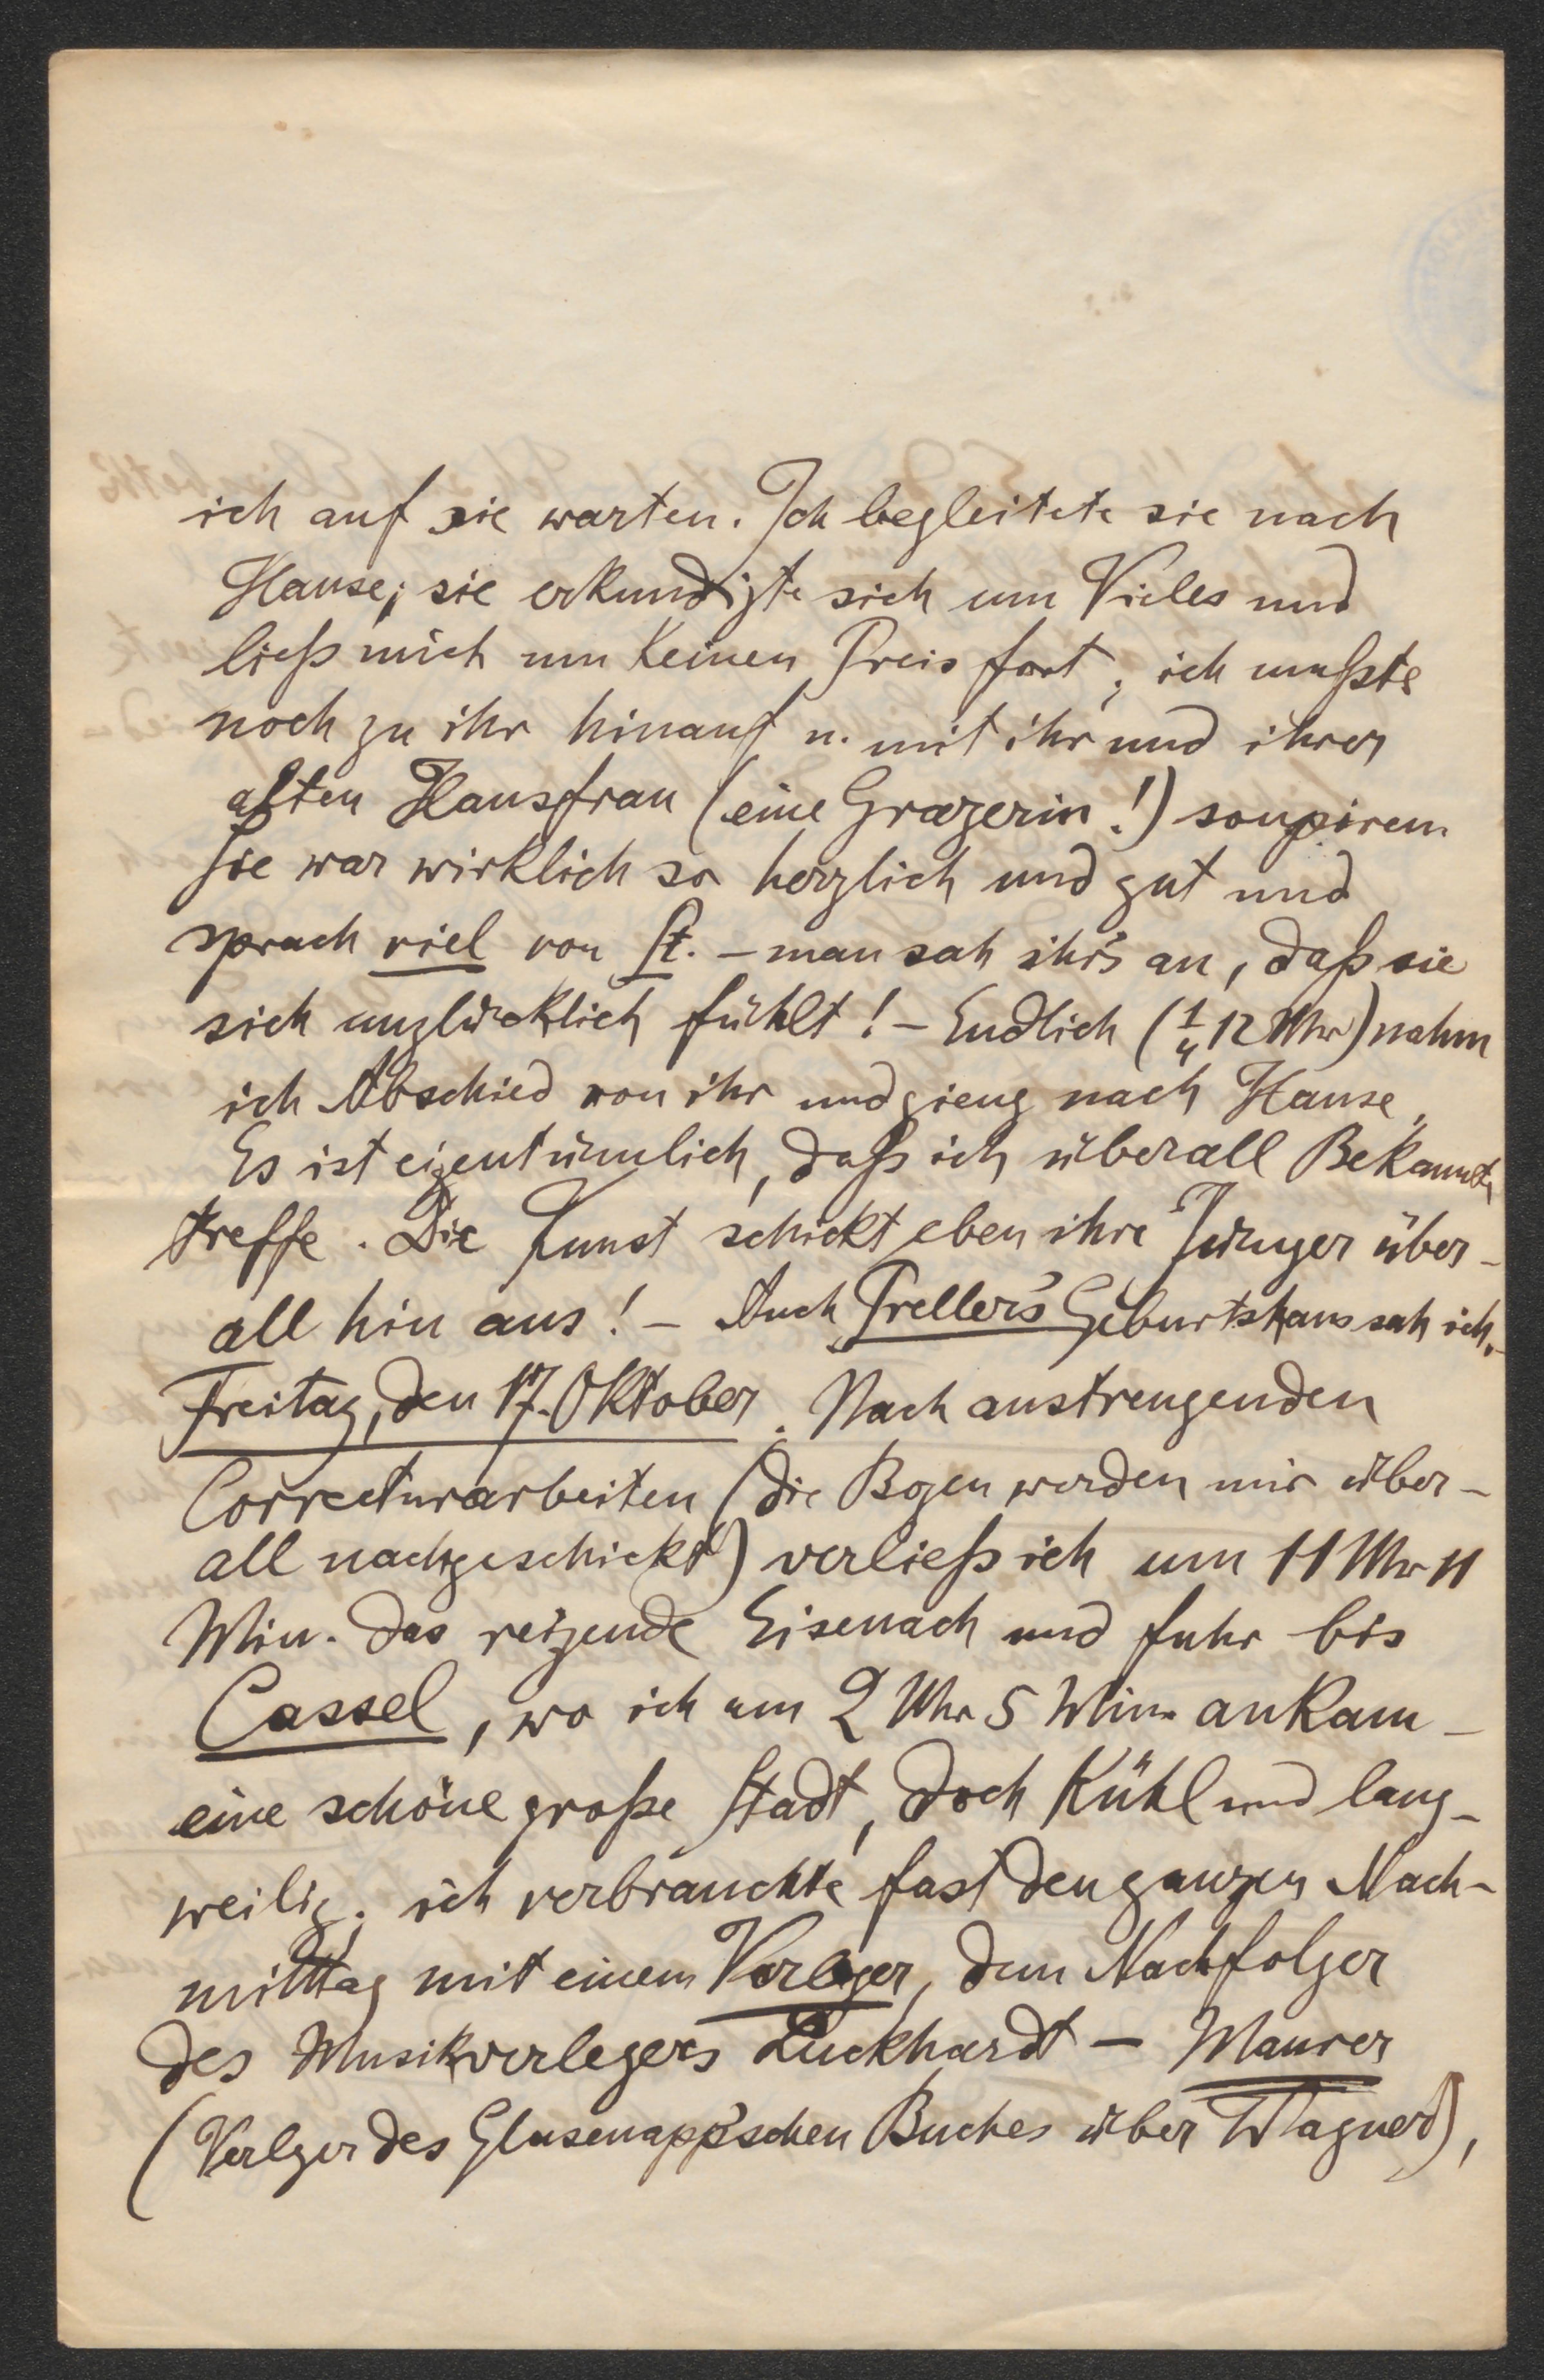 ich auf sie warten. Ich begleitete sie nach
Hause; sie erkundigte sich um Vieles und
ließ mich um keinen Preis fort; ich mußte
noch zu ihr hinauf u. mit ihr und ihrer
alten Hausfrau (eine Grazerin!) soupiren.
Sie war wirklich so herzlich und gut und
sprach viel von St. – man sah ihr's an, daß sie
sich unglücklich fühlt! – Endlich (1/4 12 Uhr) nahm
ich Abschied von ihr und gieng nach Hause.
Es ist eigentümlich, daß ich überall Bekannte
treffe. Die Kunst schickt eben ihre Jünger über-
all hin aus! – Auch Preller's Geburtshaus sah ich.
Freitag, den 17. Oktober. Nach anstrengenden
Correcturarbeiten (die Bogen werden mir über-
all nachgeschickt) verließ ich um 11 Uhr 11
Min. das reizende Eisenach und fuhr bis
Cassel, wo ich um 2 Uhr 5 Min. ankam –
eine schöne große Stadt, doch kühl und lang-
weilig; ich verbrauchte fast den ganzen Nach-
mittag mit einem Verleger, dem Nachfolger
des Musikverlegers Luckhardt – Maurer
(Verlger des Glasenapp'schen Buches über Wagner),